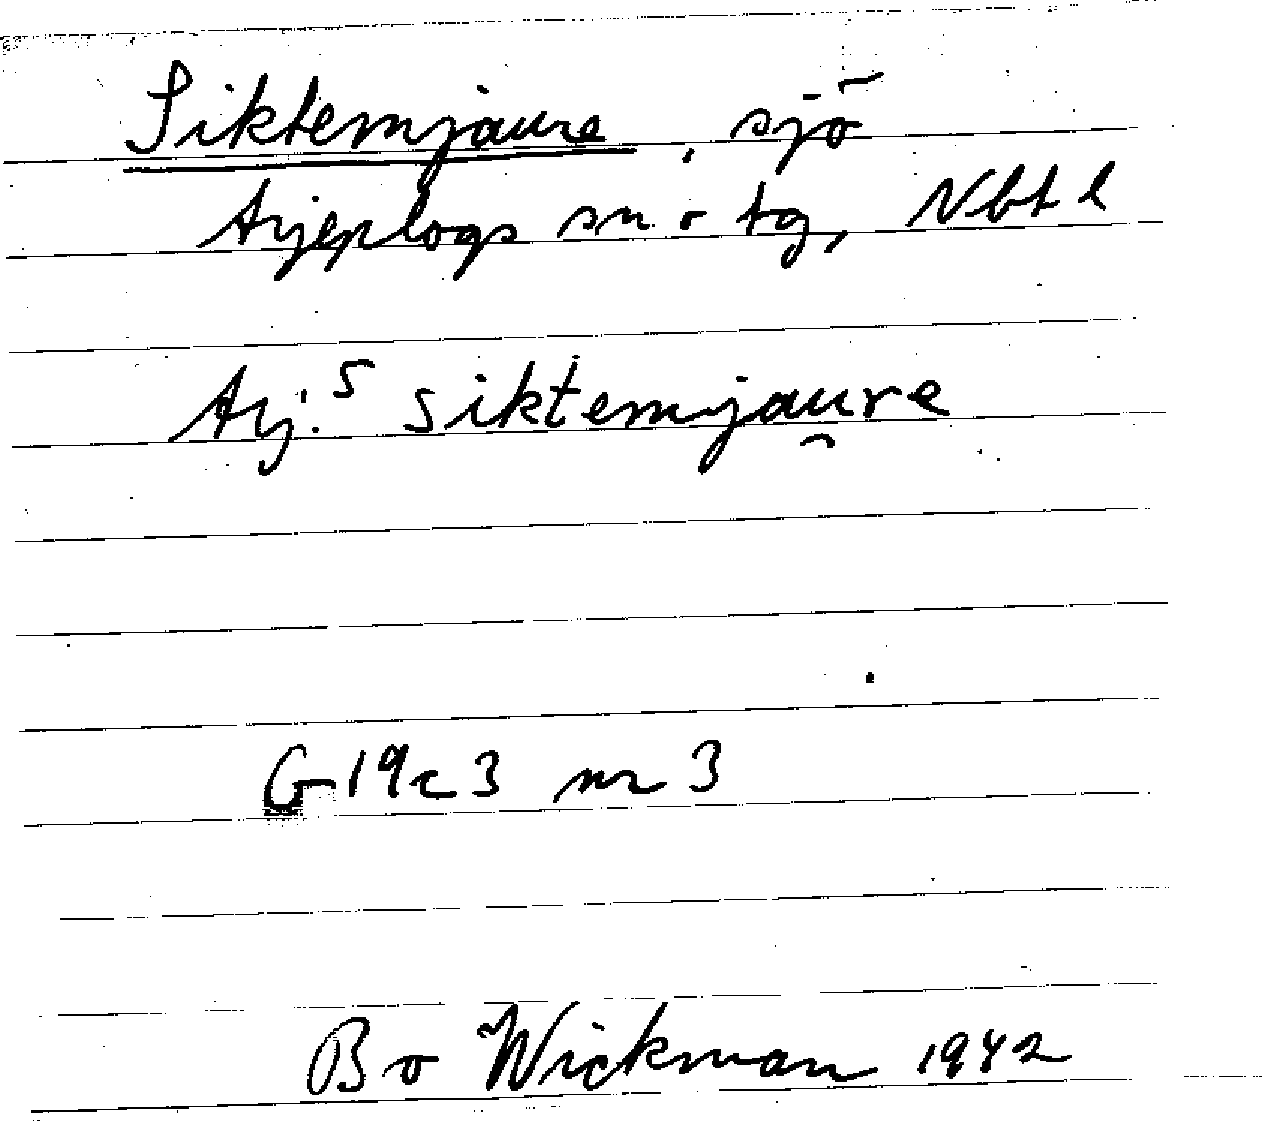 Siktemjaure, sjö
Arjeplogs sn o tg, Nbt l
Arj.ˢ siktemjau̯re
G 19c3 nr 3
Bo Wickman 1942